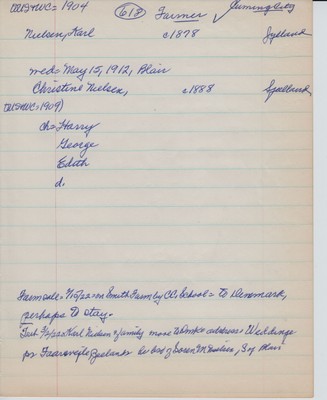 (US+WC= 1904 (613) Farmer ✓ Cuming City
Nielsen, Karl c1878 Jylland
med= May 15, 1912, Blair
Christine Nielsen, c1888 Sjælland
(US+WC=1909)
ch= Harry
George
Edith
d.
Farm sale= 1/10/22 on Smith Farm by CC School= to Denmark,
perhaps to stay.
Karl Nielsen & family move to Dmk= address= Weddinge
pr Faarevejle Sjælland